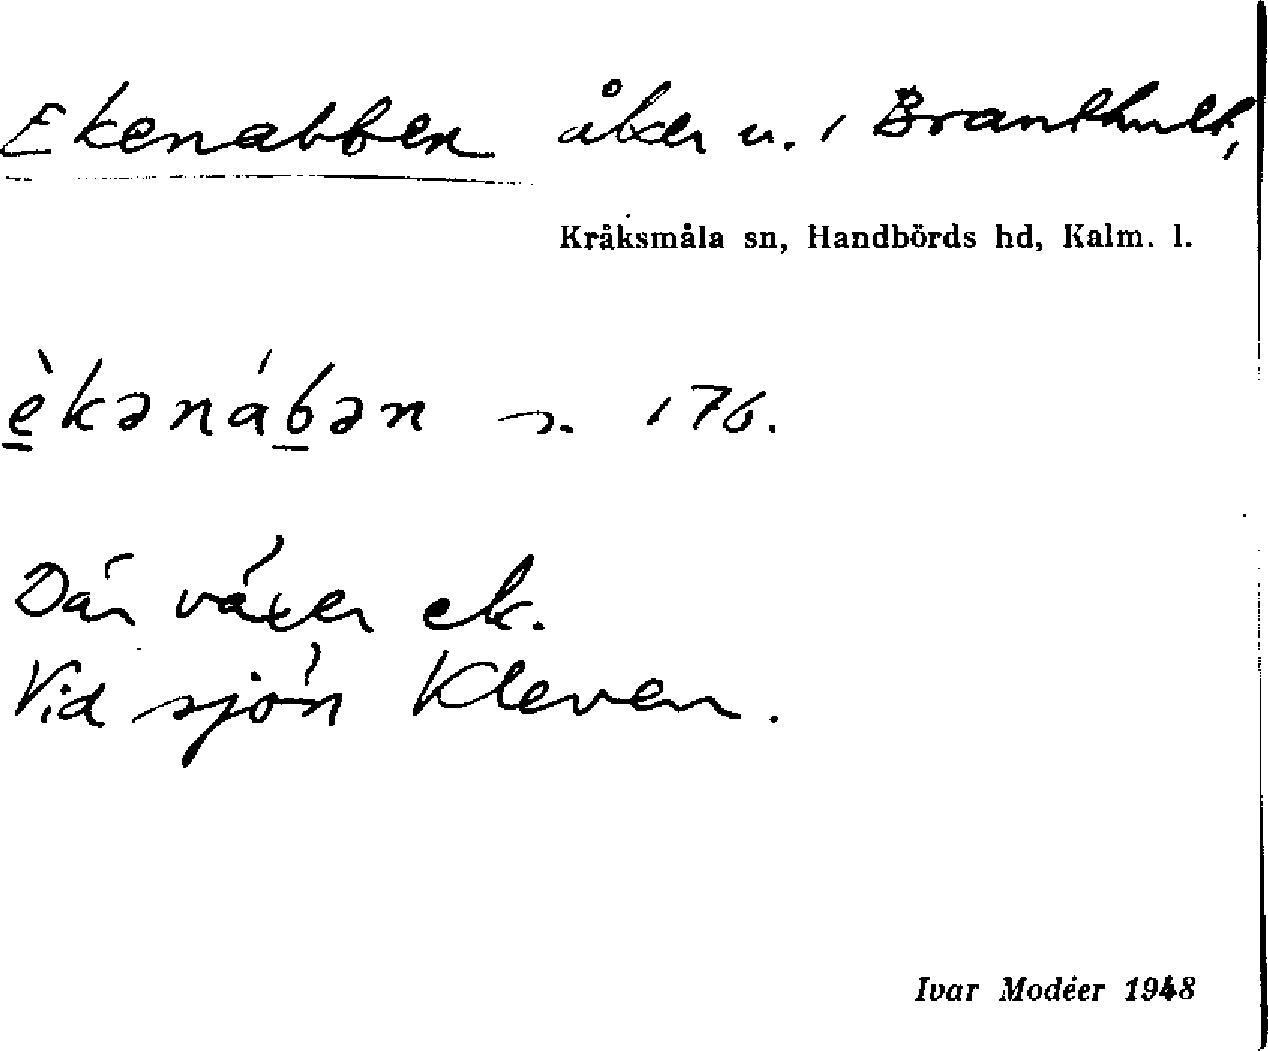 Ekenabben åker n. i Branthult,
Kråksmåla sn, Handbörds hd, Kalm. l.
èkənábən 176.
Där växer ek.
Vid sjön Kleven.
Ivar Modéer 1948